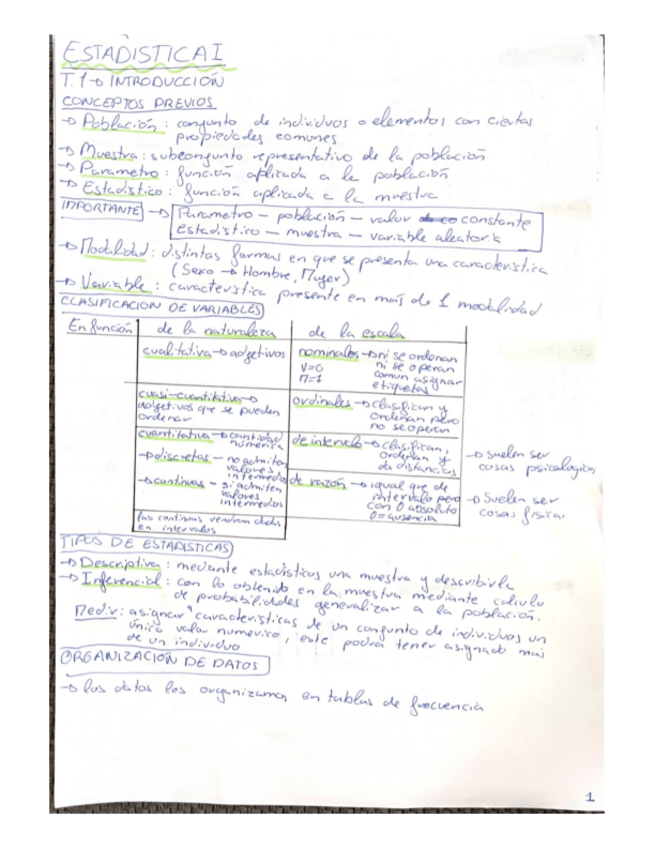 ESTADÍSTICA I
T.1→ INTRODUCCIÓN
CONCEPTOS PREVIOS
→ Población: conjunto de individuos o elementos con ciertas
propiedades comunes
→ Muestra: subconjunto representativo de la población
→ Parametro: función aplicada a la población
→ Estadístico: función aplicada a la muestra
IMPORTANTE → Parametro — población — valor constante
Estadístico — muestra — variable aleatoria
→ Modalidad: distintas formas en que se presenta una característica
(Sexo → Hombre, Mujer)
→ Variable: característica presente en más de 1 modalidad
CLASIFICACIÓN DE VARIABLES
En función de la naturaleza de la escala
cualitativa → adjetivos
nominales → ni se ordenan
V=0 ni se operan
M=1 asignar
etiquetas
cuasi-cuantitativa →
adjetivos que se pueden
ordenar
ordinales → clasifican y
ordenan pero
no se operan
cuantitativa → cantidad
numérica
→ discretas — no admiten
valores
intermedios
de intervalo → clasifican,
ordenan y
da distancias
→ suelen ser
cosas psicologicas
→ continuas — si admiten
valores
intermedios
de razón → igual que de
intervalo pero
con 0 absoluto
0=ausencia
→ Suelen ser
cosas físicas
las continuas vendran dadas
en intervalos
TIPOS DE ESTADISTICAS
→ Descriptiva: mediante estadísticos una muestra y describirla
→ Inferencial: con lo obtenido en la muestra mediante calculo
de probabilidades generalizar a la población.
Medir: asignar características de un conjunto de individuos un
único valor numerico, este podrá tener asignado más
de un individuo
ORGANIZACIÓN DE DATOS
→ los datos los organizamos en tablas de frecuencia
1